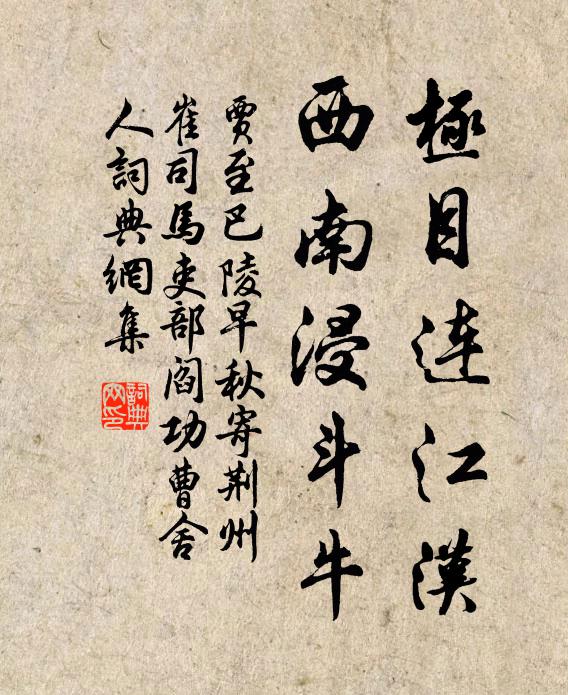 極目連江漢
西南浸斗牛
賈至巴陵早秋寄荆州
崔司馬吏部閻功曹舍
人詞典網集
詞典
网印